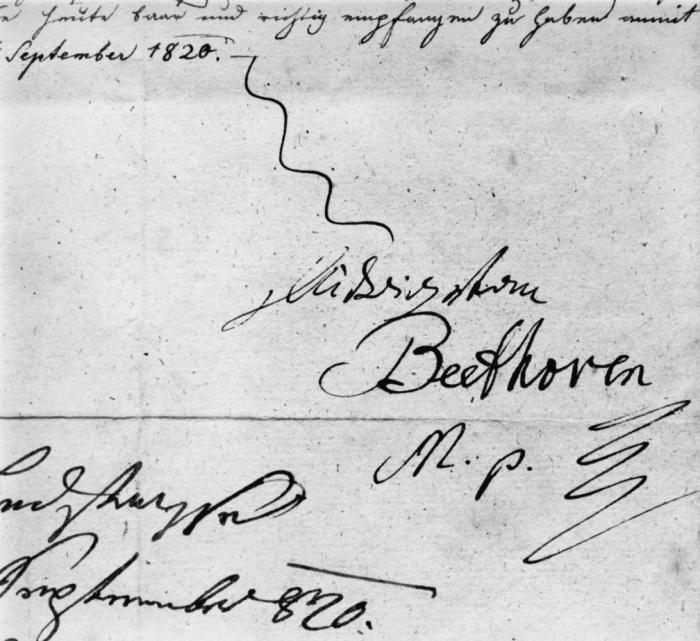 heute baar und richtig empfangen zu haben anmit
September 1820.
Ludwig van
Beethoven
M. p.
September 820.